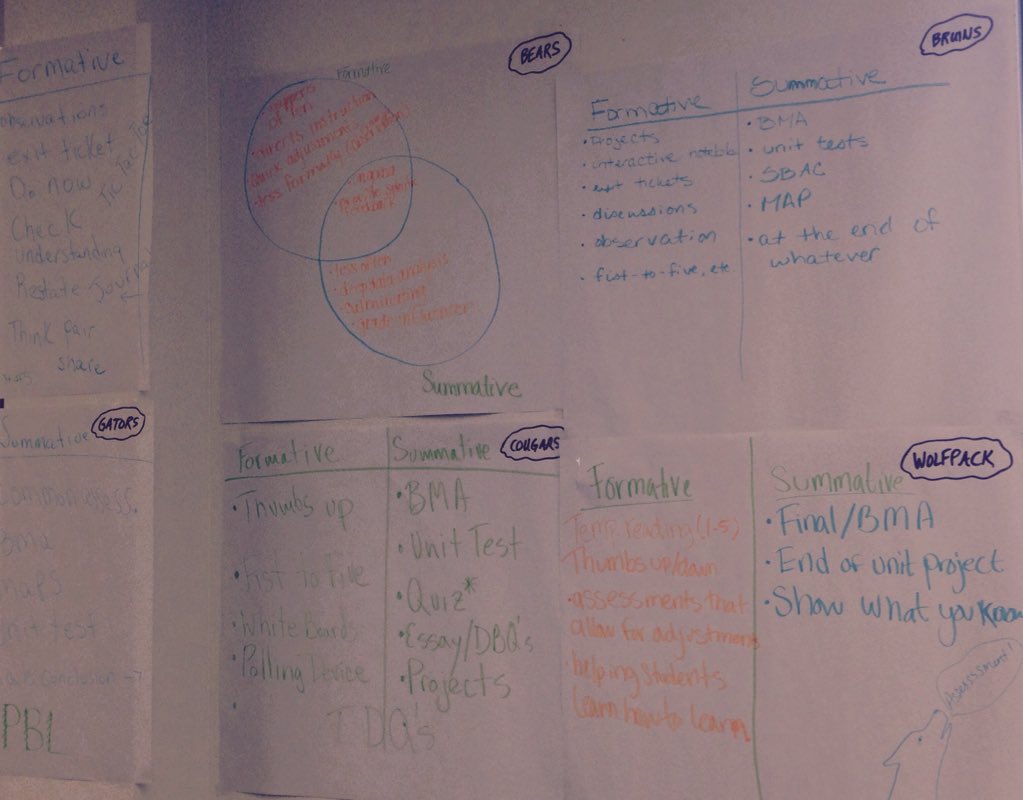 Formative
observations
exit ticket
Do now
Check
understanding
Restate your
Think pair
share
Tic Tac Toe
GATORS
Summative
Common assess.
Bma
maps
unit test
Conclusion
PBL
BEARS
Formative
often
directs instruction
Quick adjustments
less formally
ongoing
provide specific
feedback
less often
deep data analysis
culminating
grade influencer
Summative
BRUINS
Formative
• Projects
• interactive notebk
• exit tickets
• discussions
• observation
• fist-to-five, etc
Summative
• BMA
• unit tests
• SBAC
• MAP
• at the end of
whatever
COUGARS
Formative
• Thumbs up
• Fist to Five
• White Boards
• Polling Device
Summative
• BMA
• Unit Test
• Quiz*
• Essay/DBQ's
• Projects
TDQ's
WOLFPACK
Formative
Temp. reading (1-5)
Thumbs up/down
• assessments that
allow for adjustments
helping students
learn how to learn
Summative
• Final/BMA
• End of unit project
• Show what you know
Assessment!